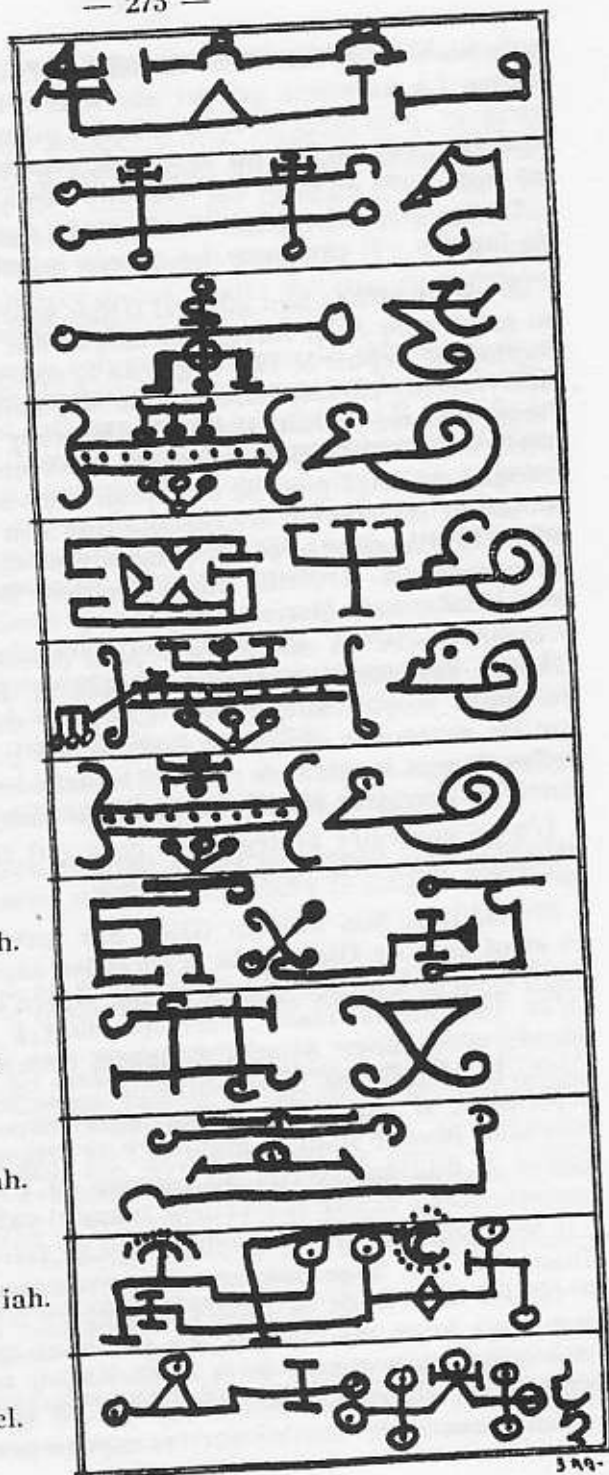 — 273 —
h.
ah.
iah.
el.